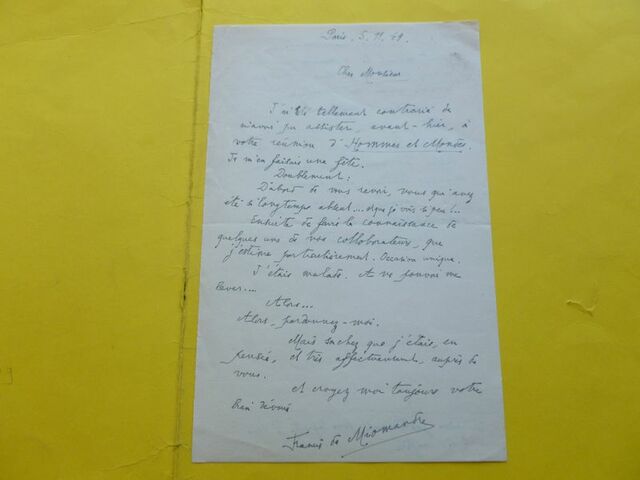 Paris, 5. 11. 49.
Cher Monsieur
J'ai été tellement contrarié de
n'avoir pu assister, avant-hier, à
votre réunion d'Hommes et Mondes.
Je m'en faisais une fête.
Doublement :
D'abord de vous revoir, vous qui avez
été si longtemps absent.... et que je vois si peu !...
Ensuite de faire la connaissance de
quelques uns de vos collaborateurs, que
j'estime particulièrement. Occasion unique.
J'étais malade. A ne pouvoir me
lever....
Alors...
Alors, pardonnez-moi.
Mais sachez que j'étais, en
pensée, et très affectueusement, auprès de
vous.
et croyez moi toujours votre
bien dévoué
Francis de Miomandre